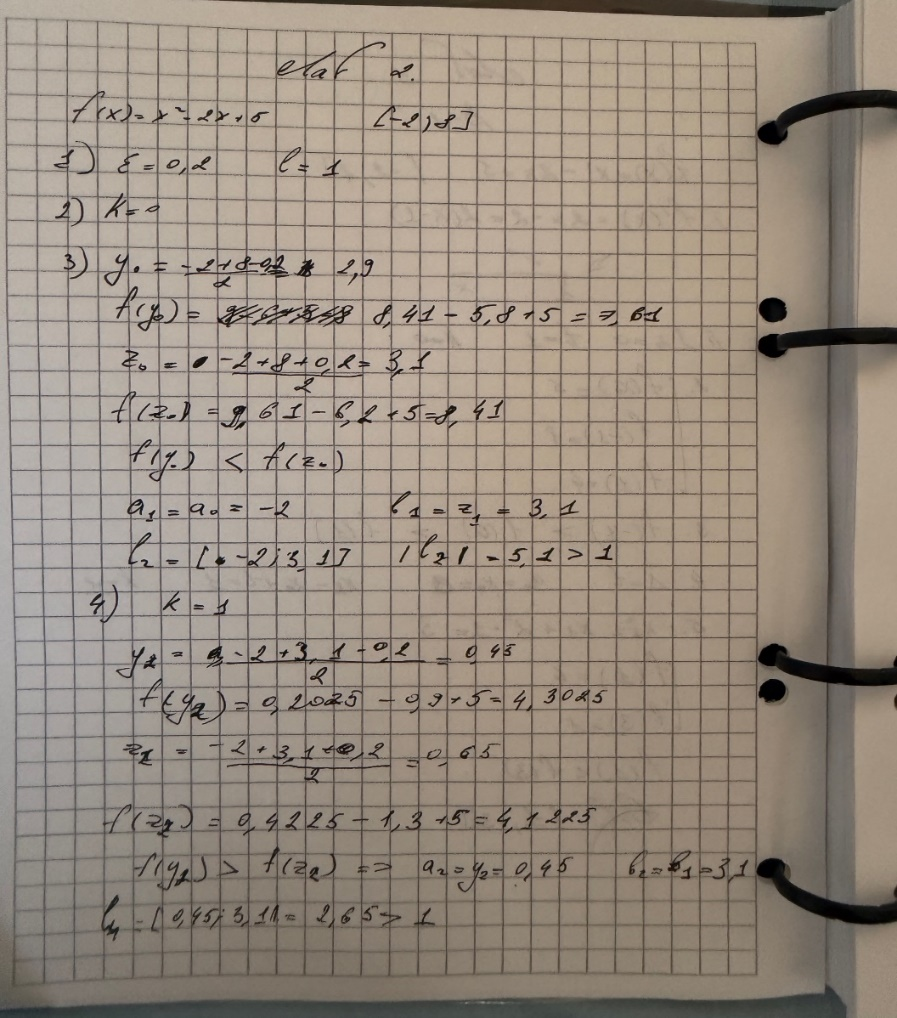 Лаб 2.
f(x) = x² - 2x + 5 [-2; 8]
1) ε = 0,2 l = 1
2) K = 0
3) y₀ = (-2+8-0,2)/2 = 2,9
f(y₀) = 8,41 - 5,8 + 5 = 7,61
z₀ = (-2+8+0,2)/2 = 3,1
f(z₀) = 9,61 - 6,2 + 5 = 8,41
f(y₀) < f(z₀)
a₁ = a₀ = -2 b₁ = z₁ = 3,1
l₂ = [-2; 3,1] |l₂| = 5,1 > 1
4) K = 1
y₂ = (-2+3,1-0,2)/2 = 0,45
f(y₂) = 0,2025 - 0,9 + 5 = 4,3025
z₂ = (-2+3,1+0,2)/2 = 0,65
f(z₂) = 0,4225 - 1,3 + 5 = 4,1225
f(y₂) > f(z₂) => a₂ = y₂ = 0,45 b₂ = b₁ = 3,1
l₄ = [0,45; 3,1] = 2,65 > 1